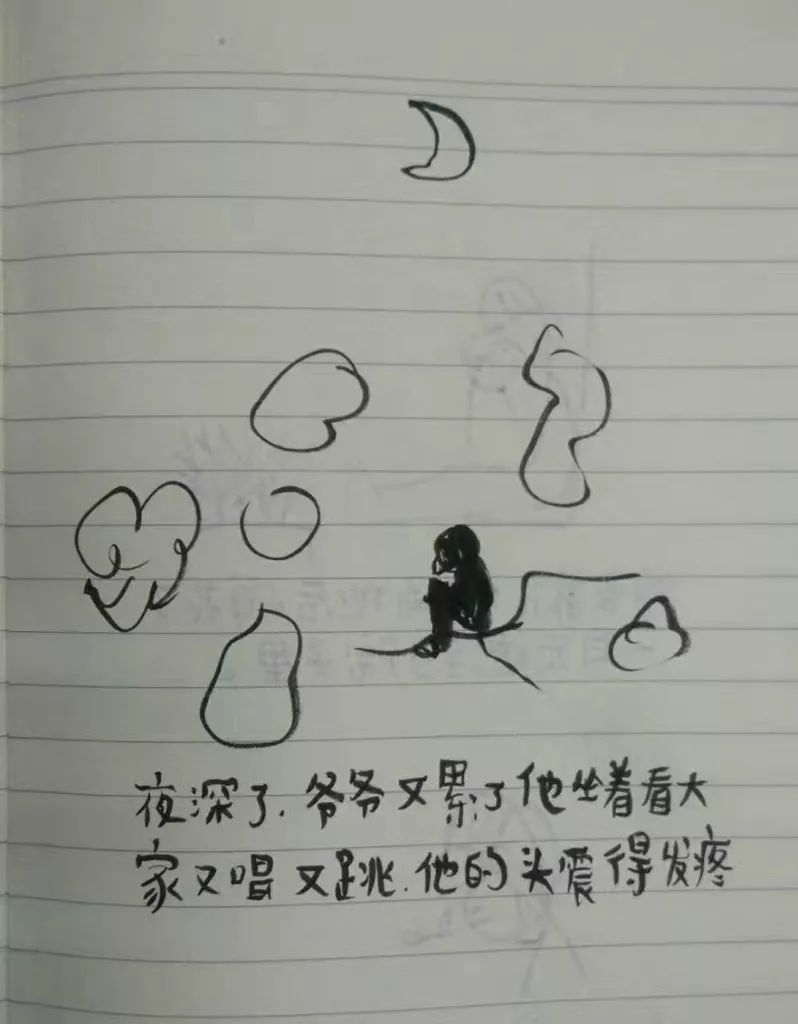 夜深了.爷爷又累了他坐着看大
家又唱又跳.他的头震得发疼